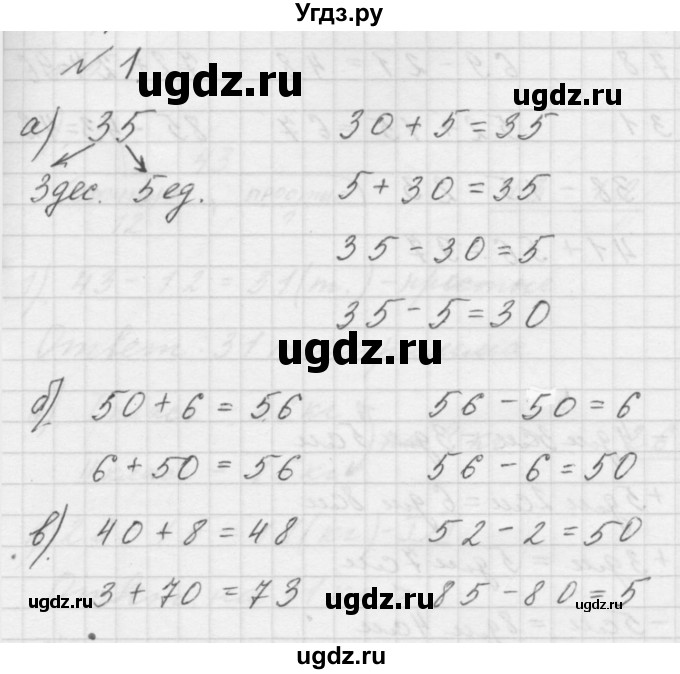 Угдз.ру
№ 1
ugdz.ru
а) 35 30 + 5 = 35
ugdz.ru
3 дес. 5 ед. 5 + 30 = 35
35 - 30 = 5
35 - 5 = 30
ugdz.ru
б) 50 + 6 = 56 56 - 50 = 6
6 + 50 = 56 56 - 6 = 50
в) 40 + 8 = 48 52 - 2 = 50
3 + 70 = 73 85 - 80 = 5
ugdz.ru ugdz.ru ugdz.ru
ugdz.ru